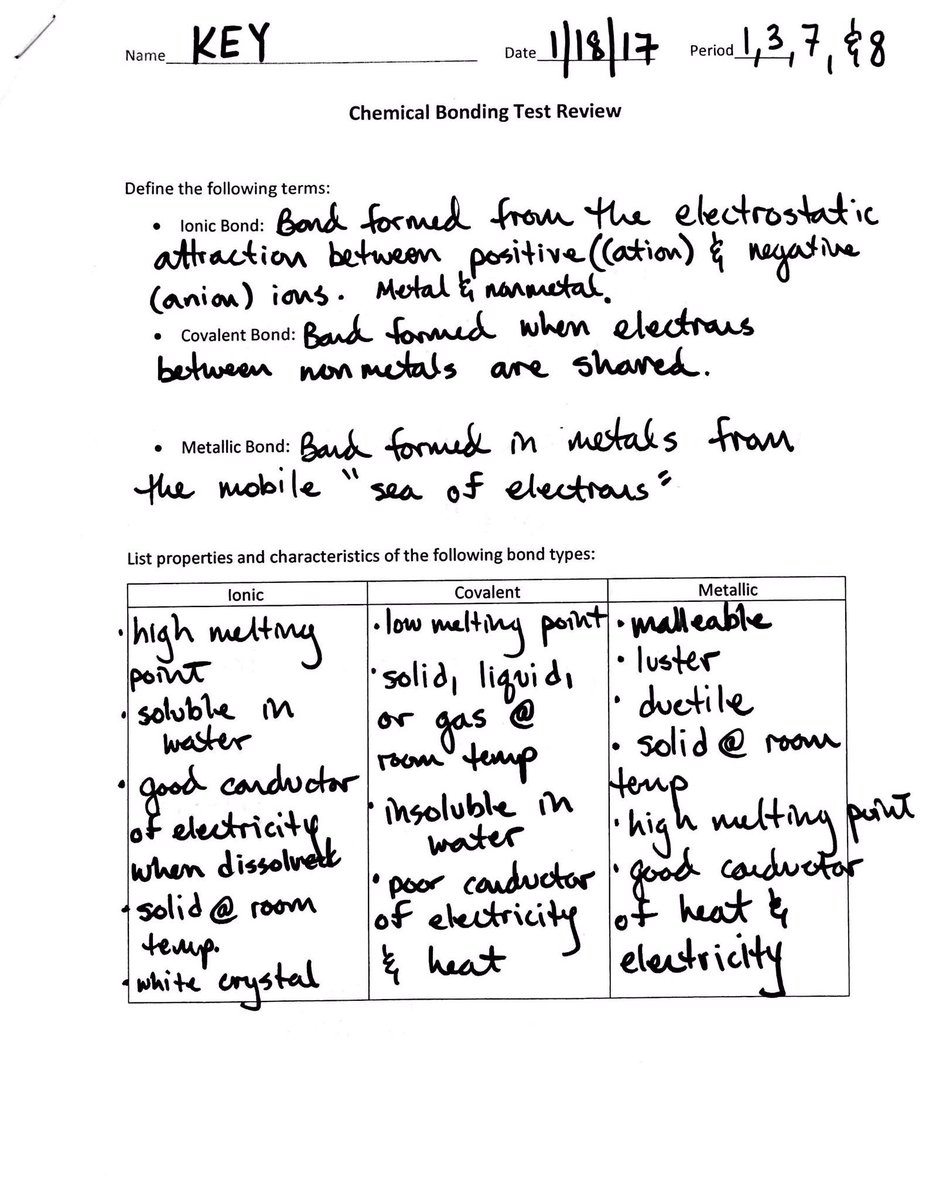 Name KEY Date 1/18/17 Period 1, 3, 7, & 8
Chemical Bonding Test Review
Define the following terms:
• Ionic Bond: Bond formed from the electrostatic
attraction between positive (cation) & negative
(anion) ions. Metal & nonmetal.
• Covalent Bond: Bond formed when electrons
between nonmetals are shared.
• Metallic Bond: Bond formed in metals from
the mobile "sea of electrons"
List properties and characteristics of the following bond types:
Ionic
• high melting
point
• soluble in
water
• good conductor
of electricity
when dissolved
• solid @ room
temp.
• white crystal
Covalent
• low melting point
• solid, liquid,
or gas @
room temp
• insoluble in
water
• poor conductor
of electricity
& heat
Metallic
• malleable
• luster
• ductile
• solid @ room
temp
• high melting point
• good conductor
of heat &
electricity